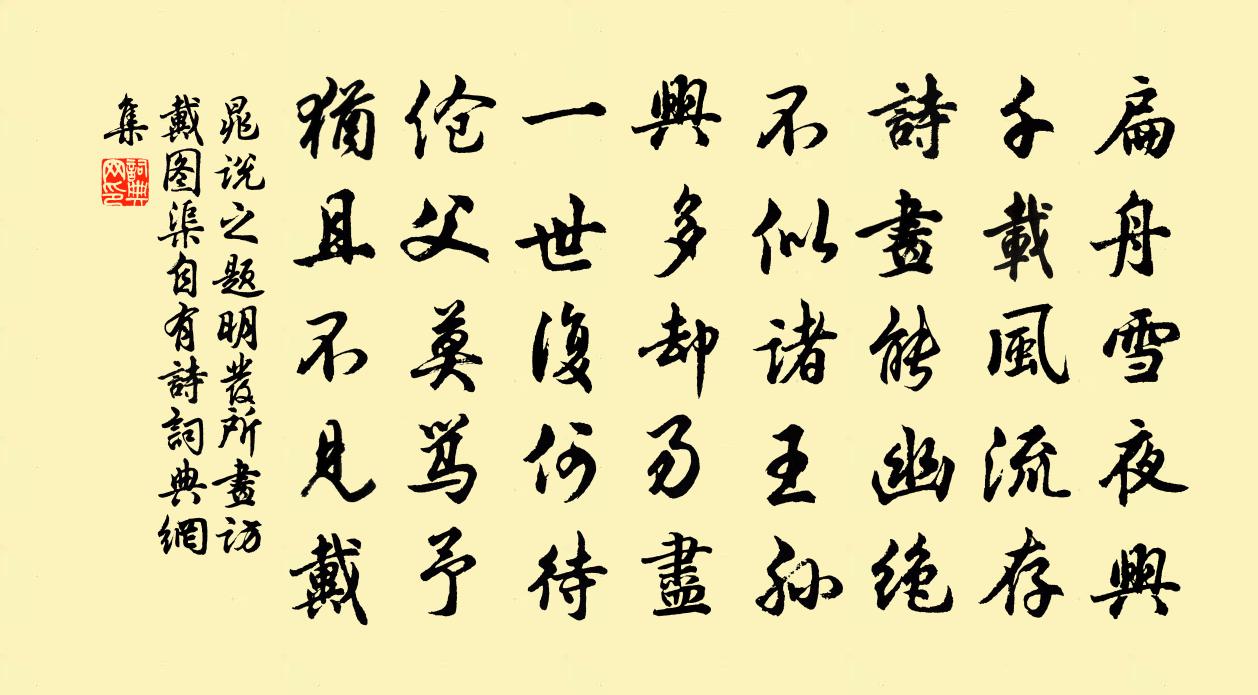 扁舟雪夜興
千載風流存
詩畫能幽絶
不似诸王孙
興多却易盡
一世復何待
伧父莫骂予
猶且不見戴
晁说之题明發所畫访
戴图渠自有詩詞典網
集
詞典網印